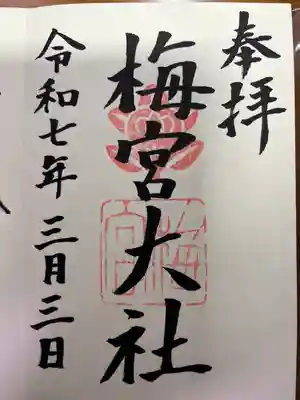 奉拝
梅宮大社
令和七年三月三日
梅宮